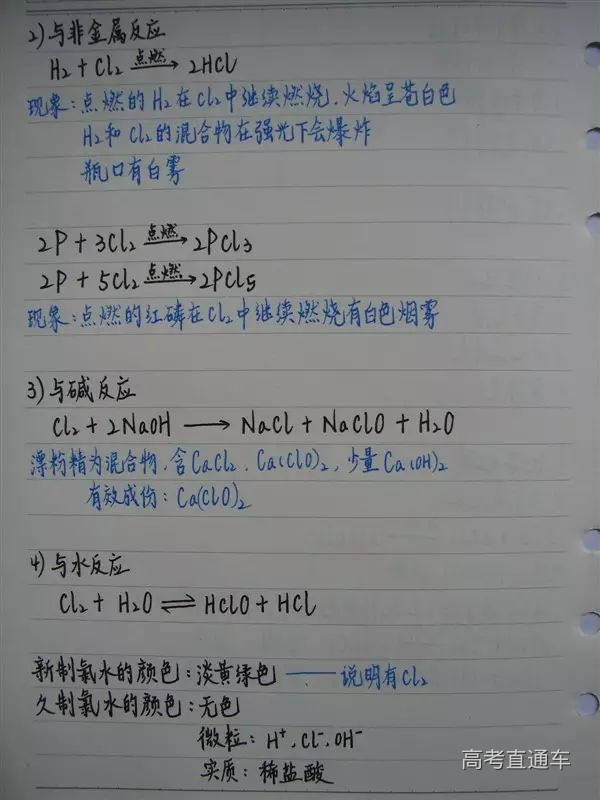 2) 与非金属反应
H₂ + Cl₂ 点燃→ 2HCl
现象: 点燃的H₂在Cl₂中继续燃烧.火焰呈苍白色
H₂和Cl₂的混合物在强光下会爆炸
瓶口有白雾
2P + 3Cl₂ 点燃→ 2PCl₃
2P + 5Cl₂ 点燃→ 2PCl₅
现象: 点燃的红磷在Cl₂中继续燃烧有白色烟雾
3) 与碱反应
Cl₂ + 2NaOH → NaCl + NaClO + H₂O
漂粉精为混合物.含CaCl₂.Ca(ClO)₂,少量Ca(OH)₂
有效成份: Ca(ClO)₂
4) 与水反应
Cl₂ + H₂O ⇌ HClO + HCl
新制氯水的颜色: 淡黄绿色 —— 说明有Cl₂
久制氯水的颜色: 无色
微粒: H⁺.Cl⁻.OH⁻
实质: 稀盐酸
高考直通车